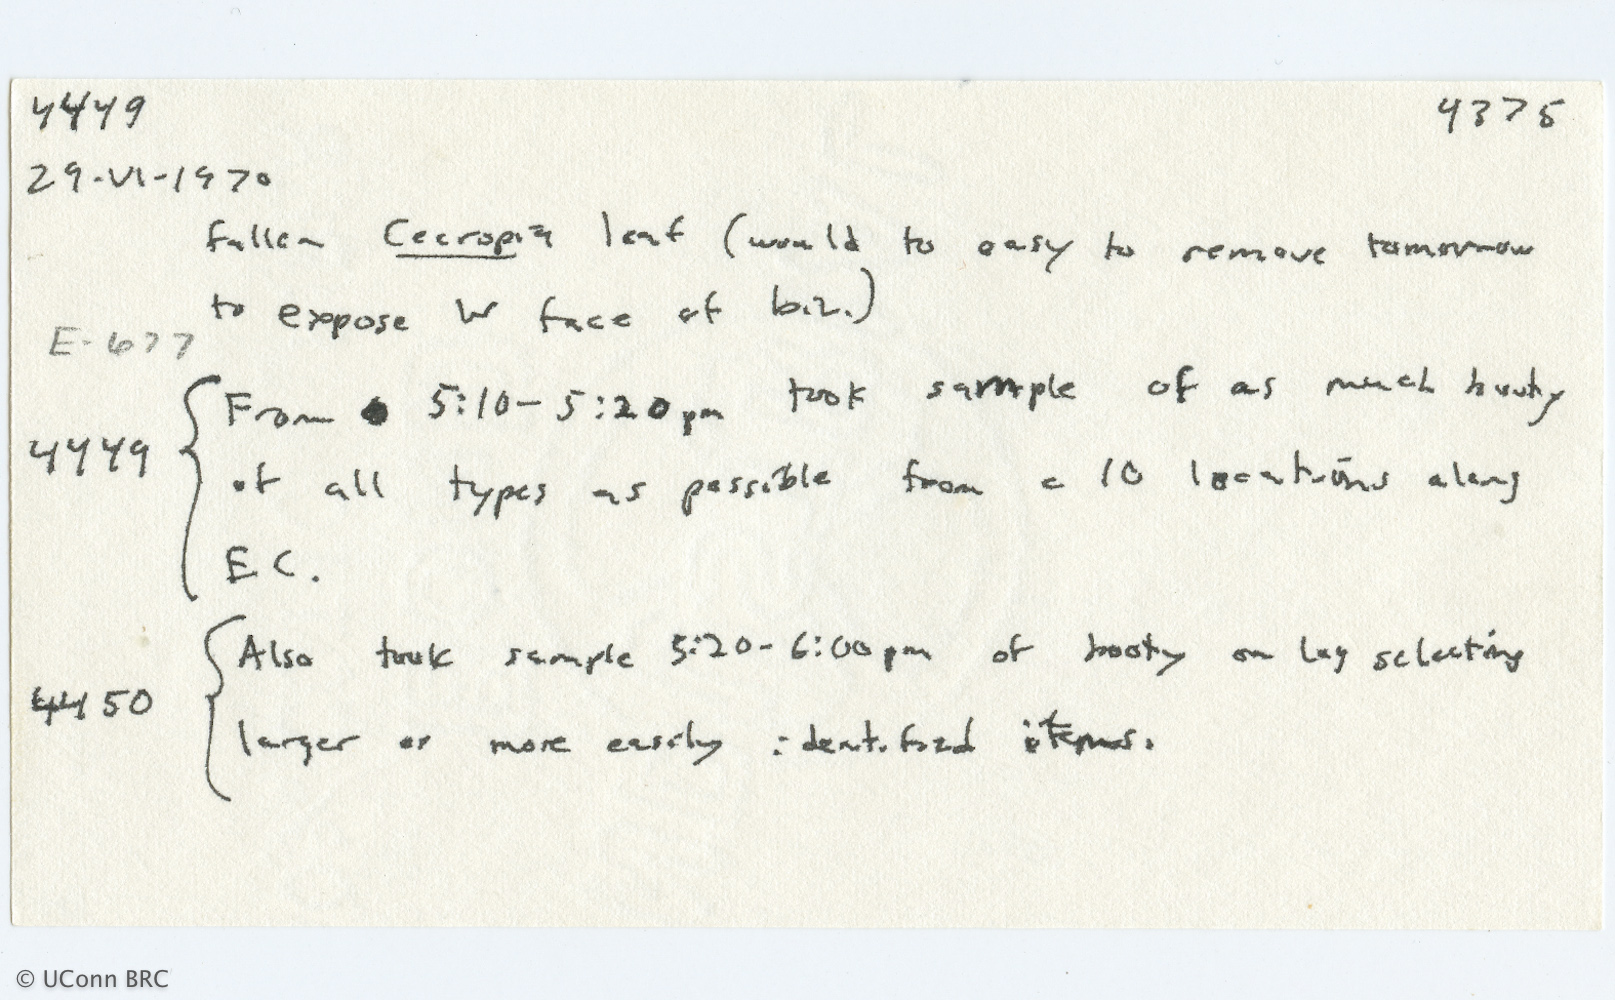 4449 4375
29-VI-1970
fallen Cecropia leaf (would to easy to remove tomorrow
to expose W face of biv.)
E-677
From 5:10-5:20pm took sample of as much booty
4449
of all types as possible from c 10 locations along
E C.
Also took sample 5:20-6:00pm of booty on log selecting
4450
larger or more easily identified items.
© UConn BRC